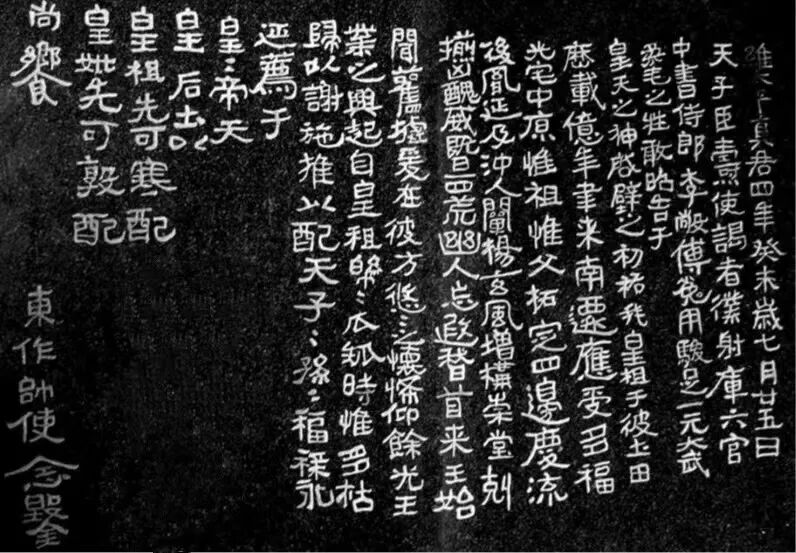 維太平真君四年癸未歲七月廿五日
天子臣燾使謁者僕射庫六官
中書侍郎李敞傅㝹用駿足一元大武
柔毛之牲敢昭告于
皇天之神啟辟之初祐我皇祖于彼土田
歷載億年聿來南遷應受多福
光宅中原惟祖惟父拓定四邊慶流
後胤延及沖人闡楊玄風增構崇堂剋
揃凶醜威暨四荒幽人忘遐稽首来王始
聞舊墟爰在彼方悠〻之懷悕仰餘光王
業之興起自皇祖綿〻瓜瓞時惟多祜
歸以謝施推以配天子〻孫〻福祿永
延薦于
皇〻帝天
皇后土以
皇祖先可寒配
皇妣先可敦配
尚饗
東作帥使念鑿